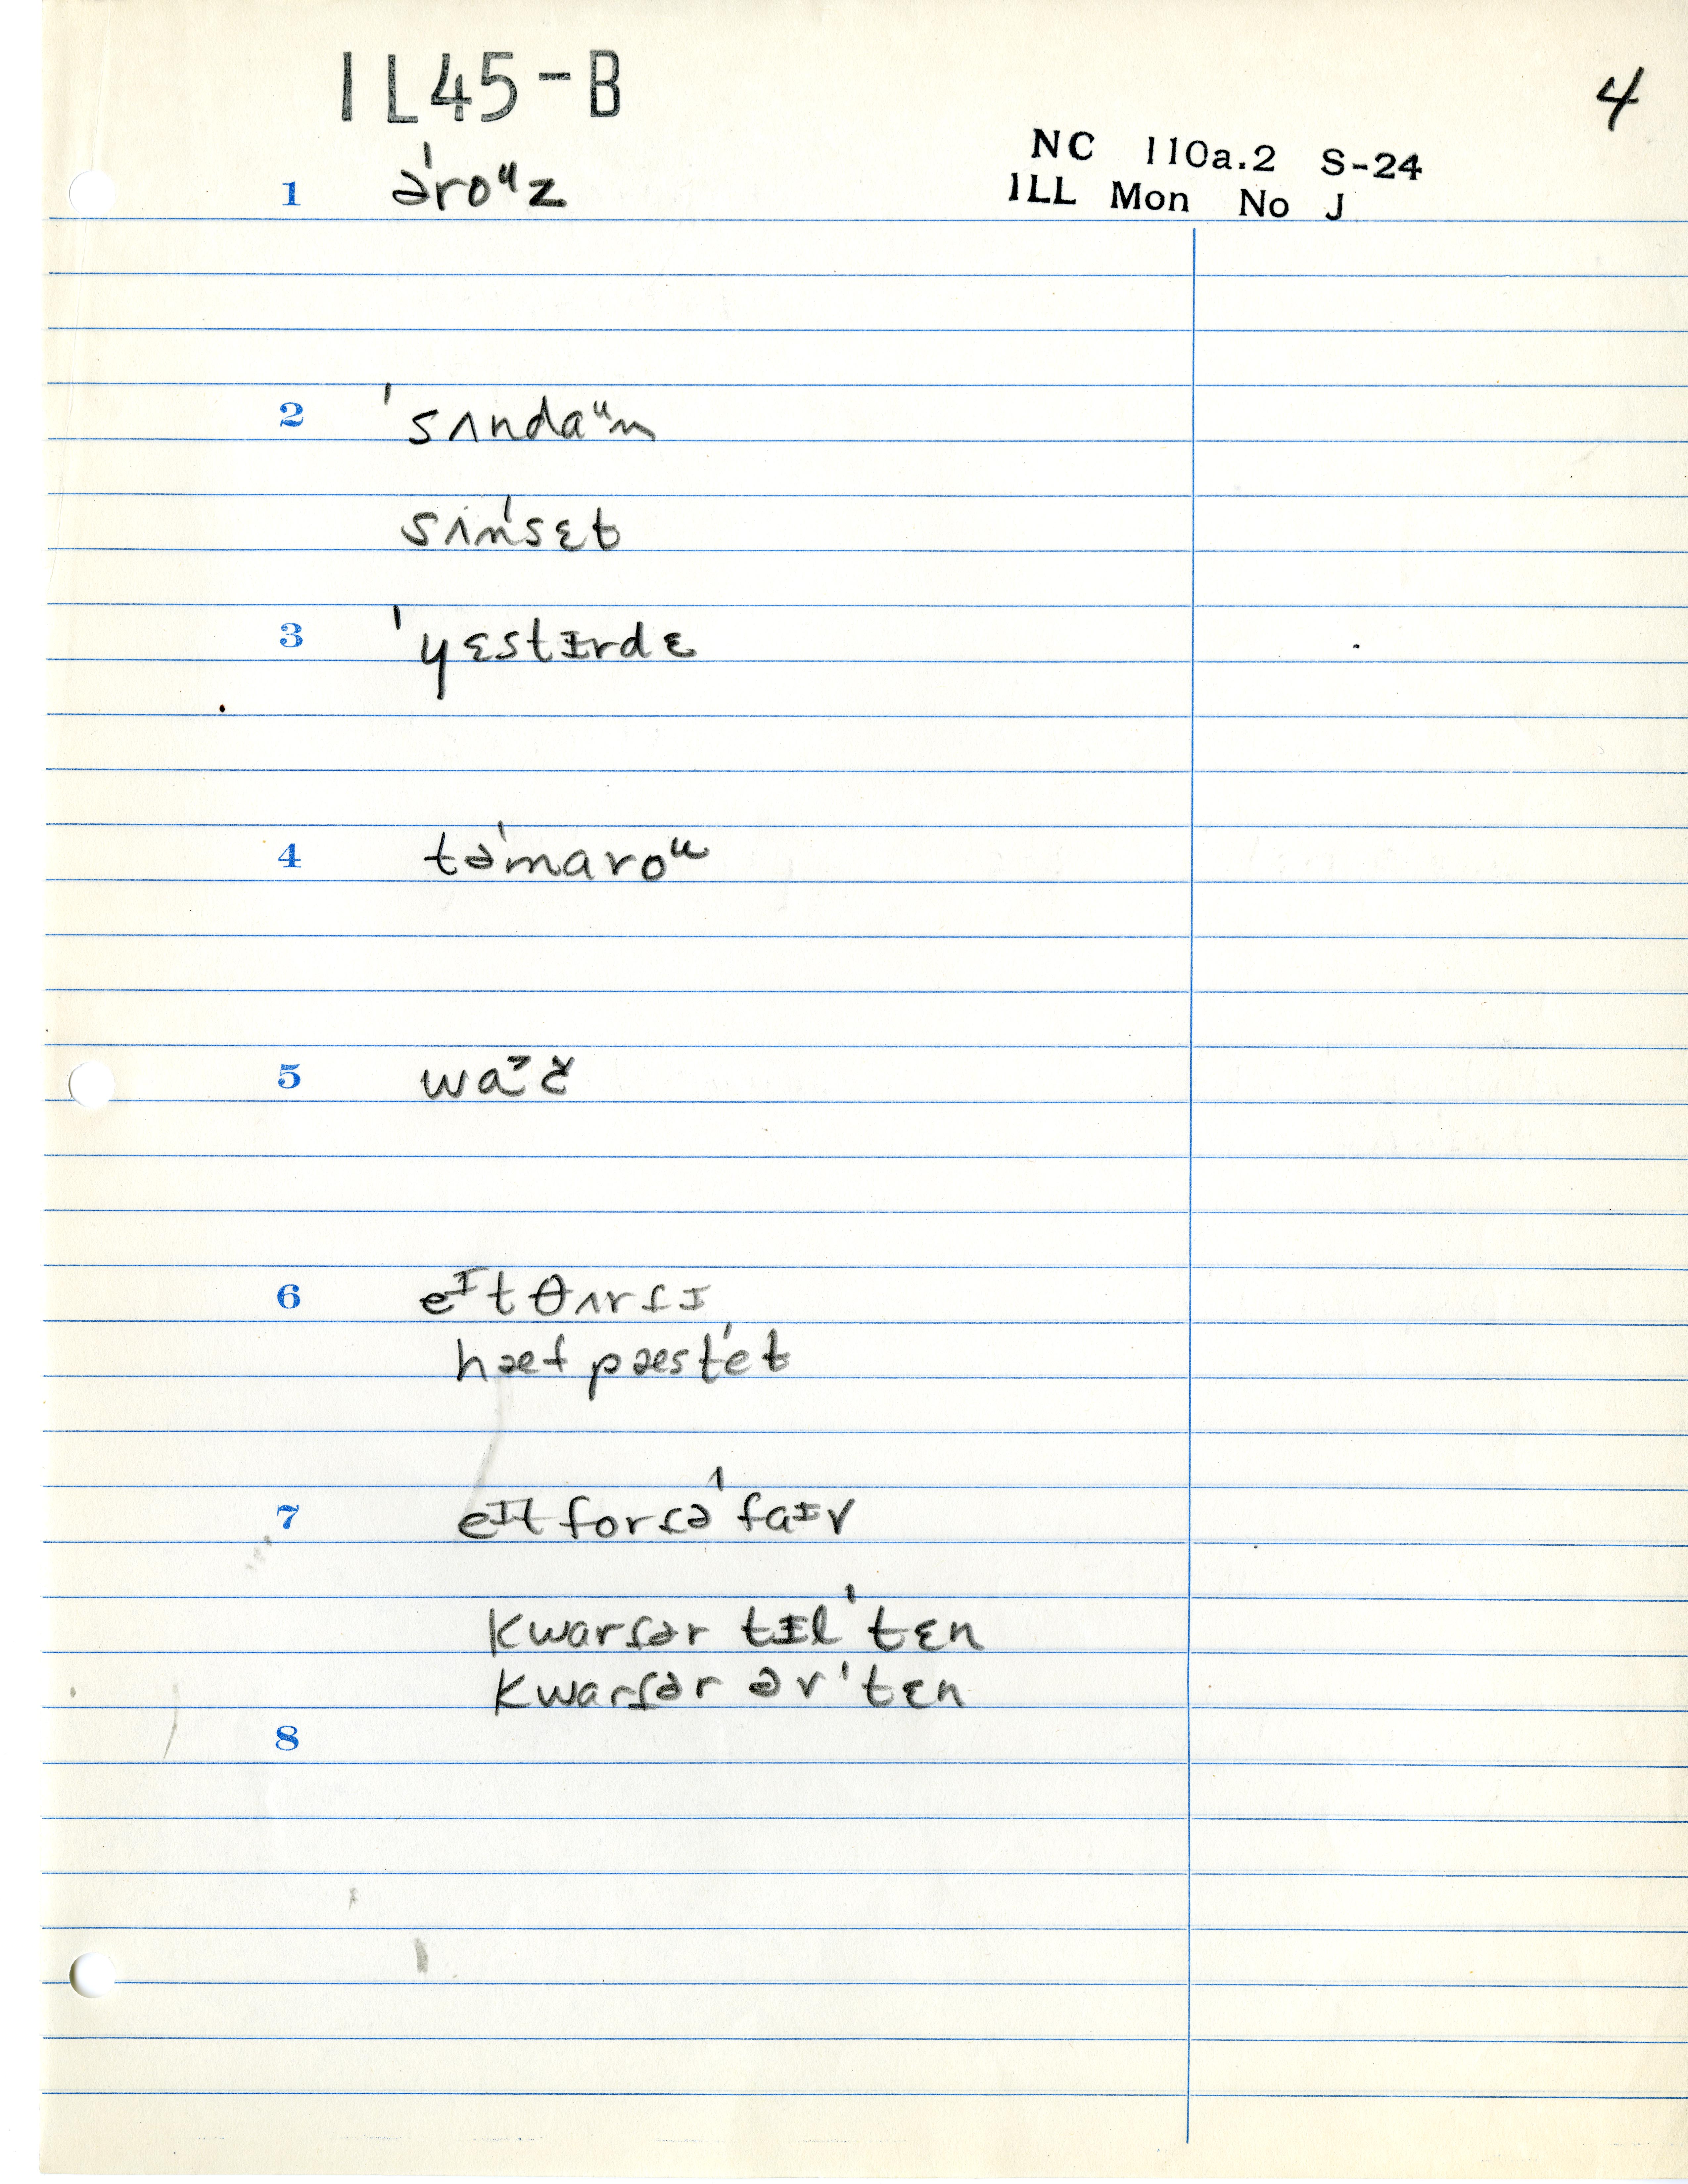 IL45-B
4
NC 110a.2 S-24
ILL Mon No J
1 əˈroᵘz
2 ˈsʌndaᵘn
sʌnˈsɛt
3 ˈyɛstɪrdɛ
4 təˈmaroᵘ
5 waᶾč
6 eᴵt θʌrɾɪ
hæf pæstˈet
7 eᴵt forɾəˈfaɪv
kwarɾər tɪlˈtɛn
kwarɾər əvˈtɛn
8